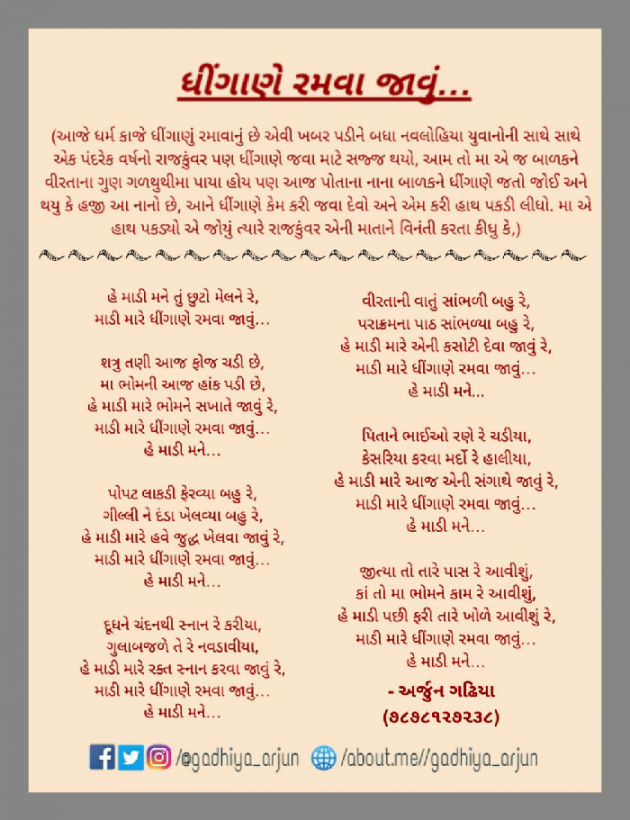 ધીંગાણે રમવા જાવું...
(આજે ધર્મ કાજે ધીંગાણું રમાવાનું છે એવી ખબર પડીને બધા નવલોહિયા યુવાનોની સાથે સાથે
એક પંદરેક વર્ષનો રાજકુંવર પણ ધીંગાણે જવા માટે સજ્જ થયો, આમ તો મા એ જ બાળકને
વીરતાના ગુણ ગળથુથીમા પાયા હોય પણ આજ પોતાના નાના બાળકને ધીંગાણે જતો જોઈ અને
થયુ કે હજી આ નાનો છે, આને ધીંગાણે કેમ કરી જવા દેવો અને એમ કરી હાથ પકડી લીધો. મા એ
હાથ પકડ્યો એ જોયું ત્યારે રાજકુંવર એની માતાને વિનંતી કરતા કીધુ કે,)
હે માડી મને તું છુટો મેલને રે,
માડી મારે ધીંગાણે રમવા જાવું...
શત્રુ તણી આજ ફોજ ચડી છે,
મા ભોમની આજ હાંક પડી છે,
હે માડી મારે ભોમને સખાતે જાવું રે,
માડી મારે ધીંગાણે રમવા જાવું...
હે માડી મને...
પોપટ લાકડી ફેરવ્યા બહુ રે,
ગીલ્લી ને દંડા ખેલવ્યા બહુ રે,
હે માડી મારે હવે જુદ્ધ ખેલવા જાવું રે,
માડી મારે ધીંગાણે રમવા જાવું...
હે માડી મને...
દૂધને ચંદનથી સ્નાન રે કરીયા,
ગુલાબજળે તે રે નવડાવીયા,
હે માડી મારે રક્ત સ્નાન કરવા જાવું રે,
માડી મારે ધીંગાણે રમવા જાવું...
હે માડી મને...
વીરતાની વાતું સાંભળી બહુ રે,
પરાક્રમના પાઠ સાંભળ્યા બહુ રે,
હે માડી મારે એની કસોટી દેવા જાવું રે,
માડી મારે ધીંગાણે રમવા જાવું...
હે માડી મને...
પિતાને ભાઈઓ રણે રે ચડીયા,
કેસરિયા કરવા મર્દો રે હાલીયા,
હે માડી મારે આજ એની સંગાથે જાવું રે,
માડી મારે ધીંગાણે રમવા જાવું...
હે માડી મને...
જીત્યા તો તારે પાસ રે આવીશું,
કાં તો મા ભોમને કામ રે આવીશું,
હે માડી પછી ફરી તારે ખોળે આવીશું રે,
માડી મારે ધીંગાણે રમવા જાવું...
હે માડી મને...
- અર્જુન ગઢિયા
(૭૮૭૮૧૨૭૨૩૮)
/@gadhiya_arjun /about.me//gadhiya_arjun